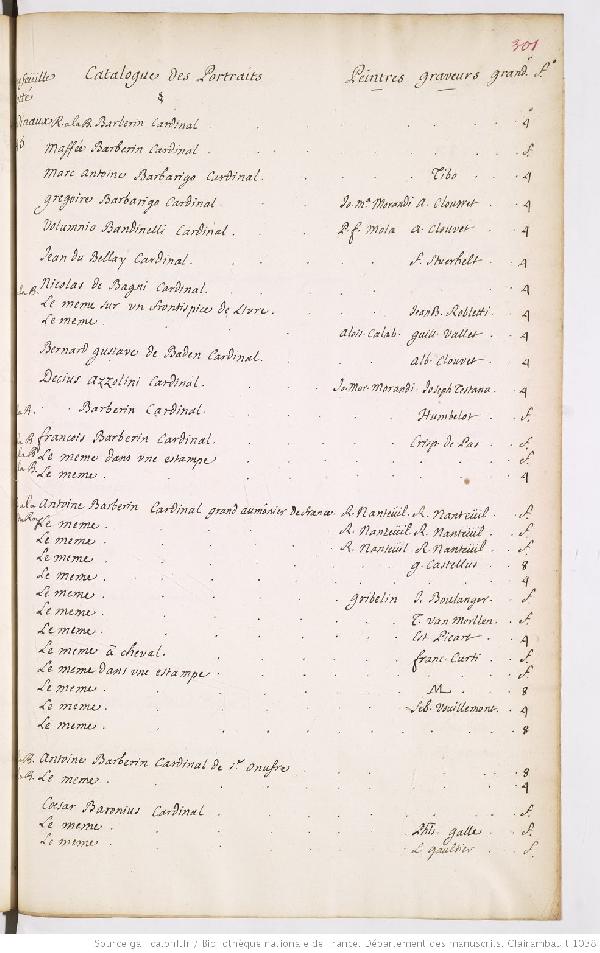 301
Catalogue des Portraits Peintres graveurs grand. f.°
Barberin Cardinal . 4
Maffée Barberin Cardinal . f.
Marc Antoine Barbarigo Cardinal . Tibo . 4
gregoire Barbarigo Cardinal . Jo. Mᵃ Morandi A. Clouvet . 4
Volumnio Bandinelli Cardinal . P. f. Mola A. Clouvet . 4
Jean du Bellay Cardinal . f. Stuerhelt . 4
Nicolas de Bagni Cardinal . 4
Le meme sur un frontispice de Livre . Jean B. Robletti . 4
Le meme . Alois. Calab. guill. Vallet . 4
Bernard gustave de Baden Cardinal . Alb. Clouvet . 4
Decius Azzolini Cardinal . Ja. Mar. Morandi Joseph Testana . 4
Barberin Cardinal . Humbelot . f.
francois Barberin Cardinal . Crisp. de Pas . f.
Le meme dans vne estampe . f.
Le meme . 4
Antoine Barberin Cardinal grand aumônier de france R. Nanteüil . R. Nanteüil . f.
Le meme . R. Nanteüil . R. Nanteüil . f.
Le meme . R. Nanteüil R. Nanteüil . f.
Le meme . g. Castellus . 8
Le meme . 4
Le meme . gribelin J. Boulanger . f.
Le meme . T. van Merllen . f.
Le meme . Est. Picart . 4
Le meme à cheval . franc. Curti . f.
Le meme dans vne estampe . f.
Le meme . M . 8
Le meme . Seb. Vouillemont . 4
Le meme . 8
Antoine Barberin Cardinal de St. Onufre 8
Le meme . 4
Cæsar Baronius Cardinal . f.
Le meme . Phls. galle . f.
Le meme . L. gaultier . f.
Source gallica.bnf.fr / Bibliothèque nationale de France. Département des manuscrits. Clairambault 1038